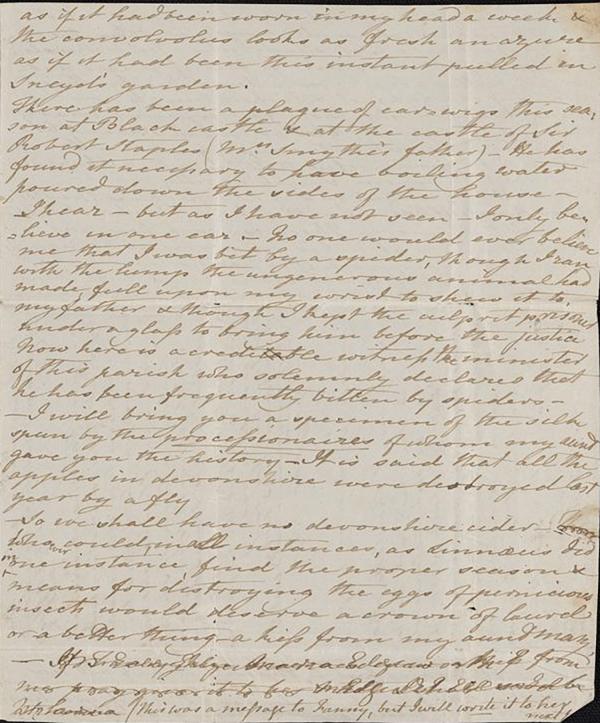 as if it had been worn in my head a week &
the convolvolus looks as fresh an azure
as if it had been this instant pulled in
Sneyd's garden.
There has been a plague of ear-wigs this sea-
son at Black castle & at the castle of Sir
Robert Staples (Mrs Smyth's father) – He has
found it necessary to have boiling water
poured down the sides of the house –
– I hear – but as I have not seen – I only be-
=lieve in one ear – No one would ever believe
me that I was bit by a spider, though I ran
with the lump the ungenerous animal had
made, full upon my wrist to shew it to
my father & though I kept the culprit prisoner
under a glass to bring him before the justice
Now here is a creditable witness the minister
of this parish who solemnly declares that
he has been frequently bitten by spiders –
– I will bring you a specimen of the silk
spun by the processionaires of whom my aunt
gave you the history – It is said that all the
apples in devonshire were destroyed last
year by a fly
– So we shall have no devonshire cider –
who could, in all instances, as Linnæus did
in one instance, find the proper season &
means for destroying the eggs of pernicious
insect would deserve a crown of laurel
or a better thing – a kiss from my aunt Mary
– or kiss from
me pray
(This was a message to Fanny, but I will write it to her
next)